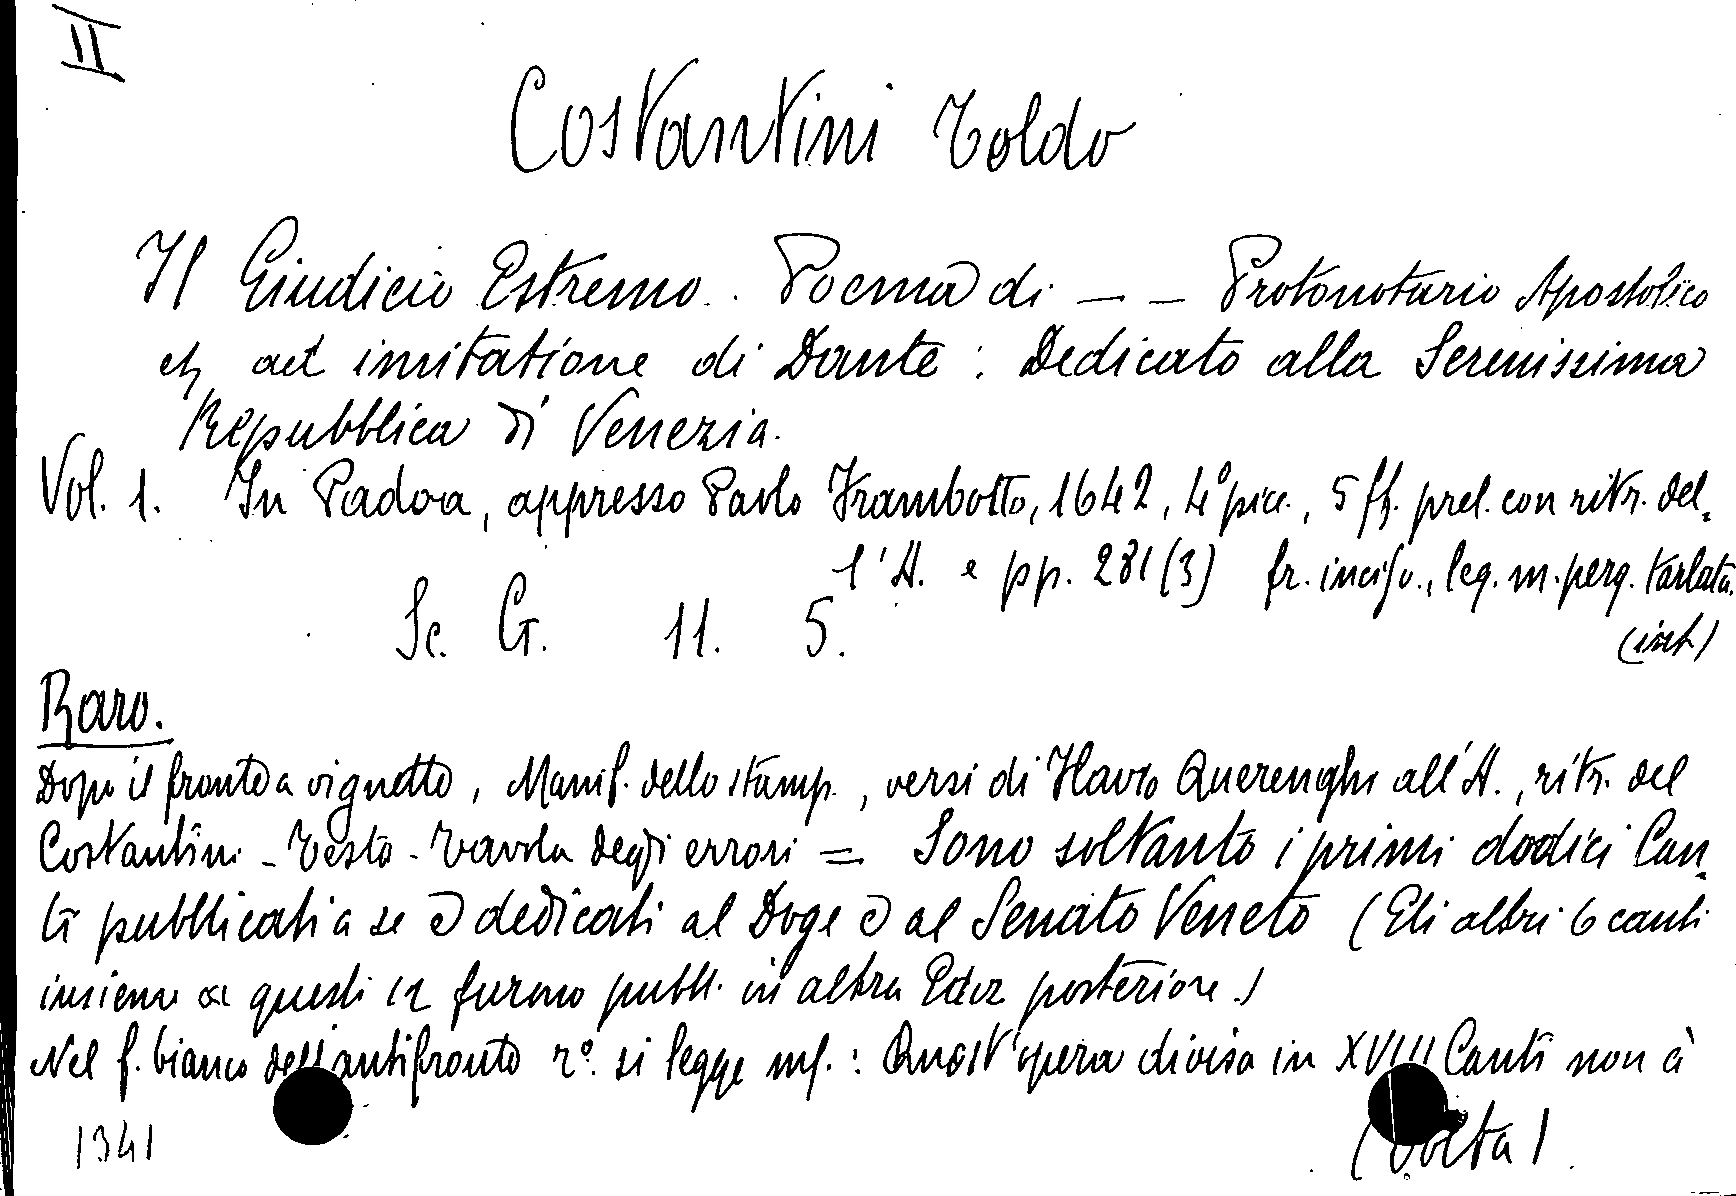 II
Costantini Toldo
Il Giudicio Estremo. Poema di — — Protonotario Apostolico
etc ad imitatione di Dante: Dedicato alla Serenissima
Repubblica di Venezia.
Vol. 1. In Padoa, appresso Paolo Frambotto, 1642, 4° picc., 5 ff. prel. con ritr. del-
l'A. e pp. 281 (3) fr. inciso., leg. m. perg. tarlata.
Sc. G. 11. 5.
Raro.
Dopo il fronte a vignetto, Manif. dello stamp., versi di Flavio Querenghi all'A., ritr. del
Costantini - Testo - Tavola degli errori = Sono soltanto i primi dodici Can-
ti pubblicati a se e dedicati al Doge e al Senato Veneto (Gli altri 6 canti
insieme a questi 12 furono pubbl. in altra Ediz. posteriore.)
Nel f. bianco dell'antifronto r°. si legge ms.: Quest'opera divisa in XVIII Canti non è
1341 (Volta)